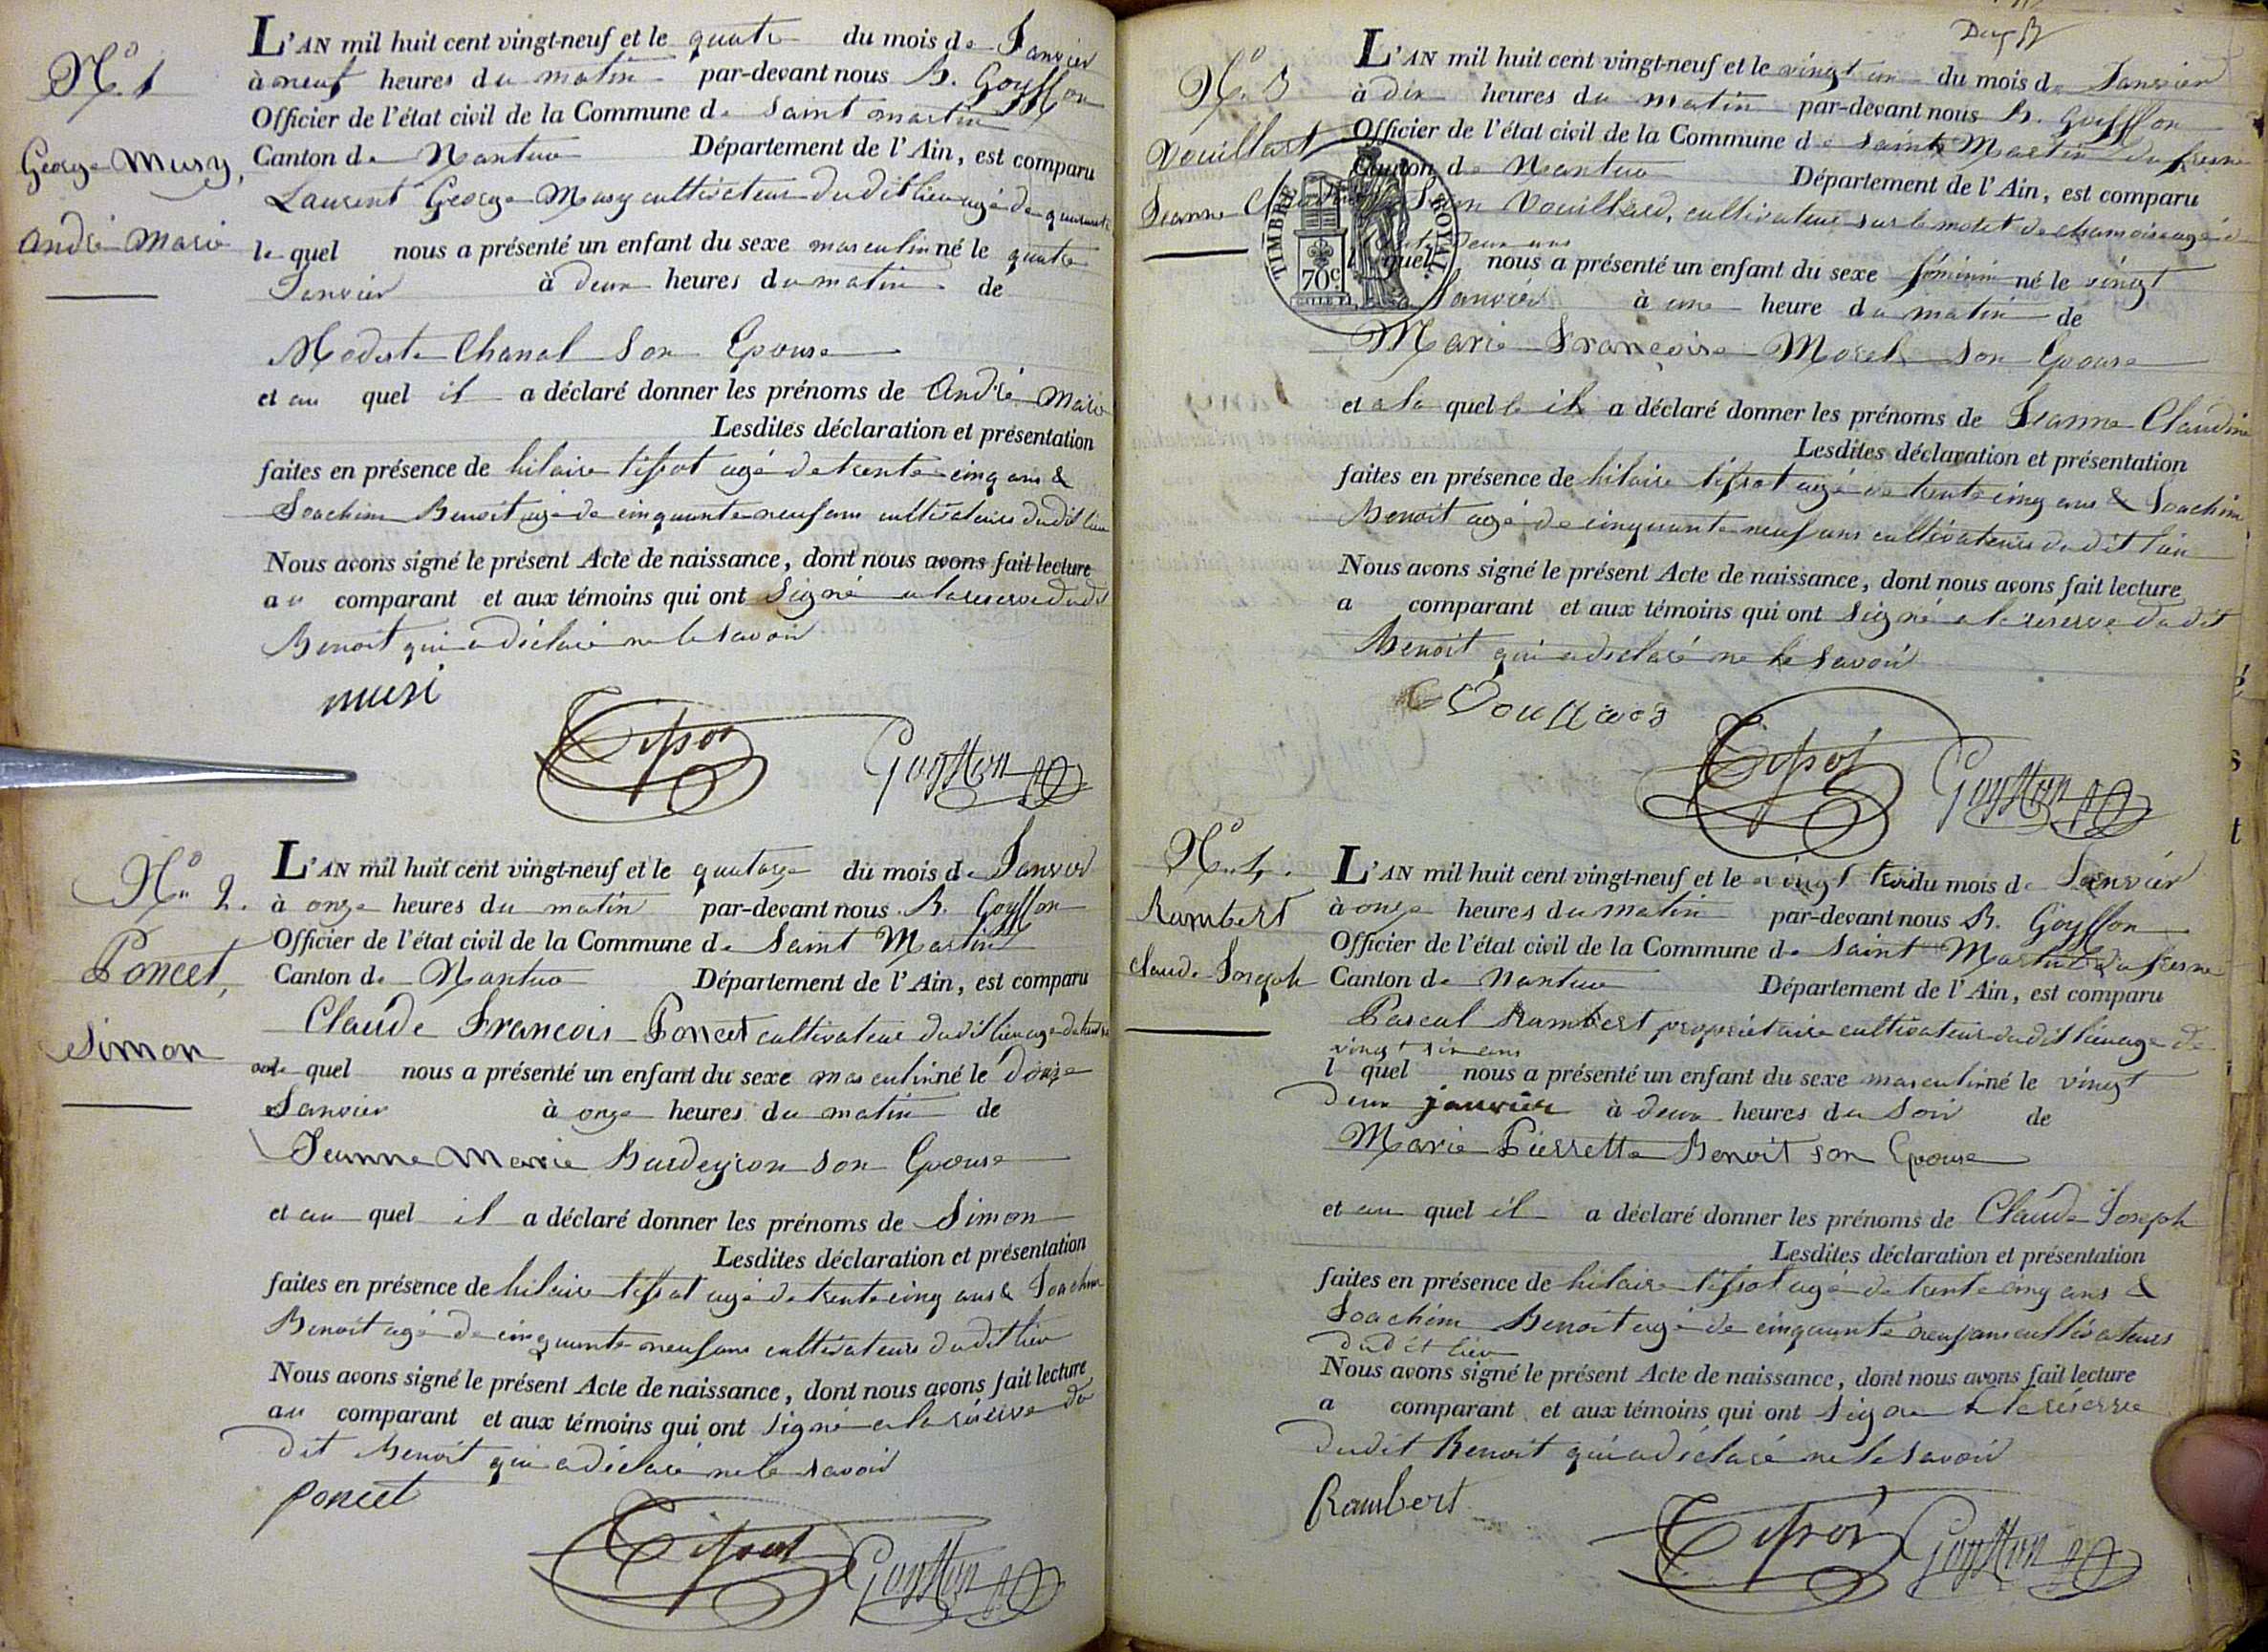 N.o 1
George Musy,
André Marie
L'AN mil huit cent vingt-neuf et le quatre du mois de Janvier
à neuf heures du matin par-devant nous B. Gouffon
Officier de l'état civil de la Commune de Saint martin
Canton de Nantua Département de l'Ain, est comparu
Laurent George Musy cultivateur dudit lieu agé de quarante
le quel nous a présenté un enfant du sexe masculin né le quatre
Janvier à deux heures du matin de
Modeste Chanal son Epouse
et au quel il a déclaré donner les prénoms de André Marie
Lesdites déclaration et présentation
faites en présence de hilaire tissot agé de trente cinq ans &
Joachim Benoit agé de cinquante neuf ans cultivateurs dudit lieu
Nous avons signé le présent Acte de naissance, dont nous avons fait lecture
au comparant et aux témoins qui ont signé a la reserve dudit
Benoit qui a déclaré ne le savoir
musi
Tissot Gouffon
N.o 2.
Poncet,
Simon
L'AN mil huit cent vingt-neuf et le quatorze du mois de Janvier
à onze heures du matin par-devant nous B. Gouffon
Officier de l'état civil de la Commune de Saint Martin
Canton de Nantua Département de l'Ain, est comparu
Claude François Poncet cultivateur dudit lieu agé de
le quel nous a présenté un enfant du sexe masculin né le douze
Janvier à onze heures du matin de
Jeanne Marie Bardeyron son Epouse
et au quel il a déclaré donner les prénoms de Simon
Lesdites déclaration et présentation
faites en présence de hilaire tissot agé de trente cinq ans & Joachim
Benoit agé de cinquante neuf ans cultivateurs dudit lieu
Nous avons signé le présent Acte de naissance, dont nous avons fait lecture
au comparant et aux témoins qui ont signé a la réserve du
dit Benoit qui a déclaré ne le savoir
poncet
Tissot Gouffon
N.o 3
Vouillart
Jeanne
TIMBRE ROYAL
70c
L'AN mil huit cent vingt-neuf et le vingt un du mois de Janvier
à dix heures du matin par-devant nous B. Gouffon
Officier de l'état civil de la Commune de Saint Martin du fresne
Canton de Nantua Département de l'Ain, est comparu
Jean Vouillard, cultivateur sur le molet de chamoise agé de
deux ans
l quel nous a présenté un enfant du sexe féminin né le vingt
Janvier à une heure du matin de
Marie Françoise Morel son Epouse
et a la quelle il a déclaré donner les prénoms de Jeanne Claudine
Lesdites déclaration et présentation
faites en présence de hilaire tissot agé de trente cinq ans & Joachim
Benoit agé de cinquante neuf ans cultivateurs dudit lieu
Nous avons signé le présent Acte de naissance, dont nous avons fait lecture
a comparant et aux témoins qui ont signé a la réserve dudit
Benoit qui a déclaré ne le savoir
Tissot Gouffon
N.o 4.
Rambert
Claude Joseph
L'AN mil huit cent vingt-neuf et le vingt trois du mois de Janvier
à onze heures du matin par-devant nous B. Gouffon
Officier de l'état civil de la Commune de Saint Martin du fresne
Canton de Nantua Département de l'Ain, est comparu
Pascal Rambert propriétaire cultivateur dudit lieu agé de
vingt six ans
l quel nous a présenté un enfant du sexe masculin né le vingt
deux janvier à deux heures du Soir de
Marie Pierrette Benoit son Epouse
et au quel il a déclaré donner les prénoms de Claude Joseph
Lesdites déclaration et présentation
faites en présence de hilaire tissot agé de trente cinq ans &
Joachim Benoit agé de cinquante neuf ans cultivateurs
dudit lieu
Nous avons signé le présent Acte de naissance, dont nous avons fait lecture
a comparant et aux témoins qui ont signé a la réserve
dudit Benoit qui a déclaré ne le savoir
Rambert
Tissot Gouffon